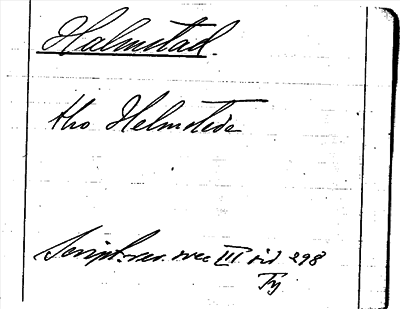 Halmstad.
tho Helmstede
Script. rer. svec III sid 298
Tj